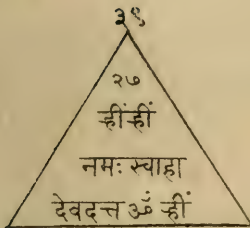 ३९
२७
ह्रींह्रीं
नमः स्वाहा
देवदत्त ॐ ह्रीं